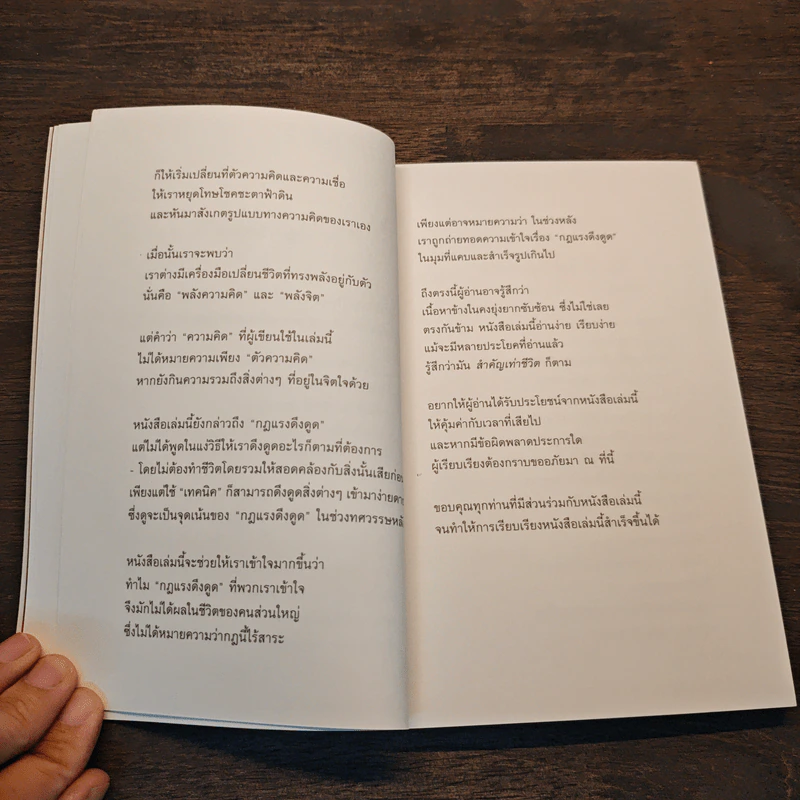 ก็ให้เริ่มเปลี่ยนที่ตัวความคิดและความเชื่อ
ให้เราหยุดโทษโชคชะตาฟ้าดิน
และหันมาสังเกตรูปแบบทางความคิดของเราเอง
เมื่อนั้นเราจะพบว่า
เราต่างมีเครื่องมือเปลี่ยนชีวิตที่ทรงพลังอยู่กับตัว
นั่นคือ “พลังความคิด” และ “พลังจิต”
แต่คำว่า “ความคิด” ที่ผู้เขียนใช้ในเล่มนี้
ไม่ได้หมายความเพียง “ตัวความคิด”
หากยังกินความรวมถึงสิ่งต่างๆ ที่อยู่ในจิตใจด้วย
หนังสือเล่มนี้ยังกล่าวถึง “กฎแรงดึงดูด”
แต่ไม่ได้พูดในแง่วิธีให้เราดึงดูดอะไรก็ตามที่ต้องการ
- โดยไม่ต้องทำชีวิตโดยรวมให้สอดคล้องกับสิ่งนั้นเสียก่อน
เพียงแต่ใช้ “เทคนิค” ก็สามารถดึงดูดสิ่งต่างๆ เข้ามาง่าย
ซึ่งดูจะเป็นจุดเน้นของ “กฎแรงดึงดูด” ในช่วงทศวรรษ
หนังสือเล่มนี้จะช่วยให้เราเข้าใจมากขึ้นว่า
ทำไม “กฎแรงดึงดูด” ที่พวกเราเข้าใจ
จึงมักไม่ได้ผลในชีวิตของคนส่วนใหญ่
ซึ่งไม่ได้หมายความว่ากฎนี้ไร้สาระ
เพียงแต่อาจหมายความว่า ในช่วงหลัง
เราถูกถ่ายทอดความเข้าใจเรื่อง “กฎแรงดึงดูด”
ในมุมที่แคบและสำเร็จรูปเกินไป
ถึงตรงนี้ผู้อ่านอาจรู้สึกว่า
เนื้อหาข้างในคงยุ่งยากซับซ้อน ซึ่งไม่ใช่เลย
ตรงกันข้าม หนังสือเล่มนี้อ่านง่าย เรียบง่าย
แม้จะมีหลายประโยคที่อ่านแล้ว
รู้สึกว่ามัน สำคัญเท่าชีวิต ก็ตาม
อยากให้ผู้อ่านได้รับประโยชน์จากหนังสือเล่มนี้
ให้คุ้มค่ากับเวลาที่เสียไป
และหากมีข้อผิดพลาดประการใด
ผู้เรียบเรียงต้องกราบขออภัยมา ณ ที่นี้
ขอบคุณทุกท่านที่มีส่วนร่วมกับหนังสือเล่มนี้
จนทำให้การเรียบเรียงหนังสือเล่มนี้สำเร็จขึ้นได้